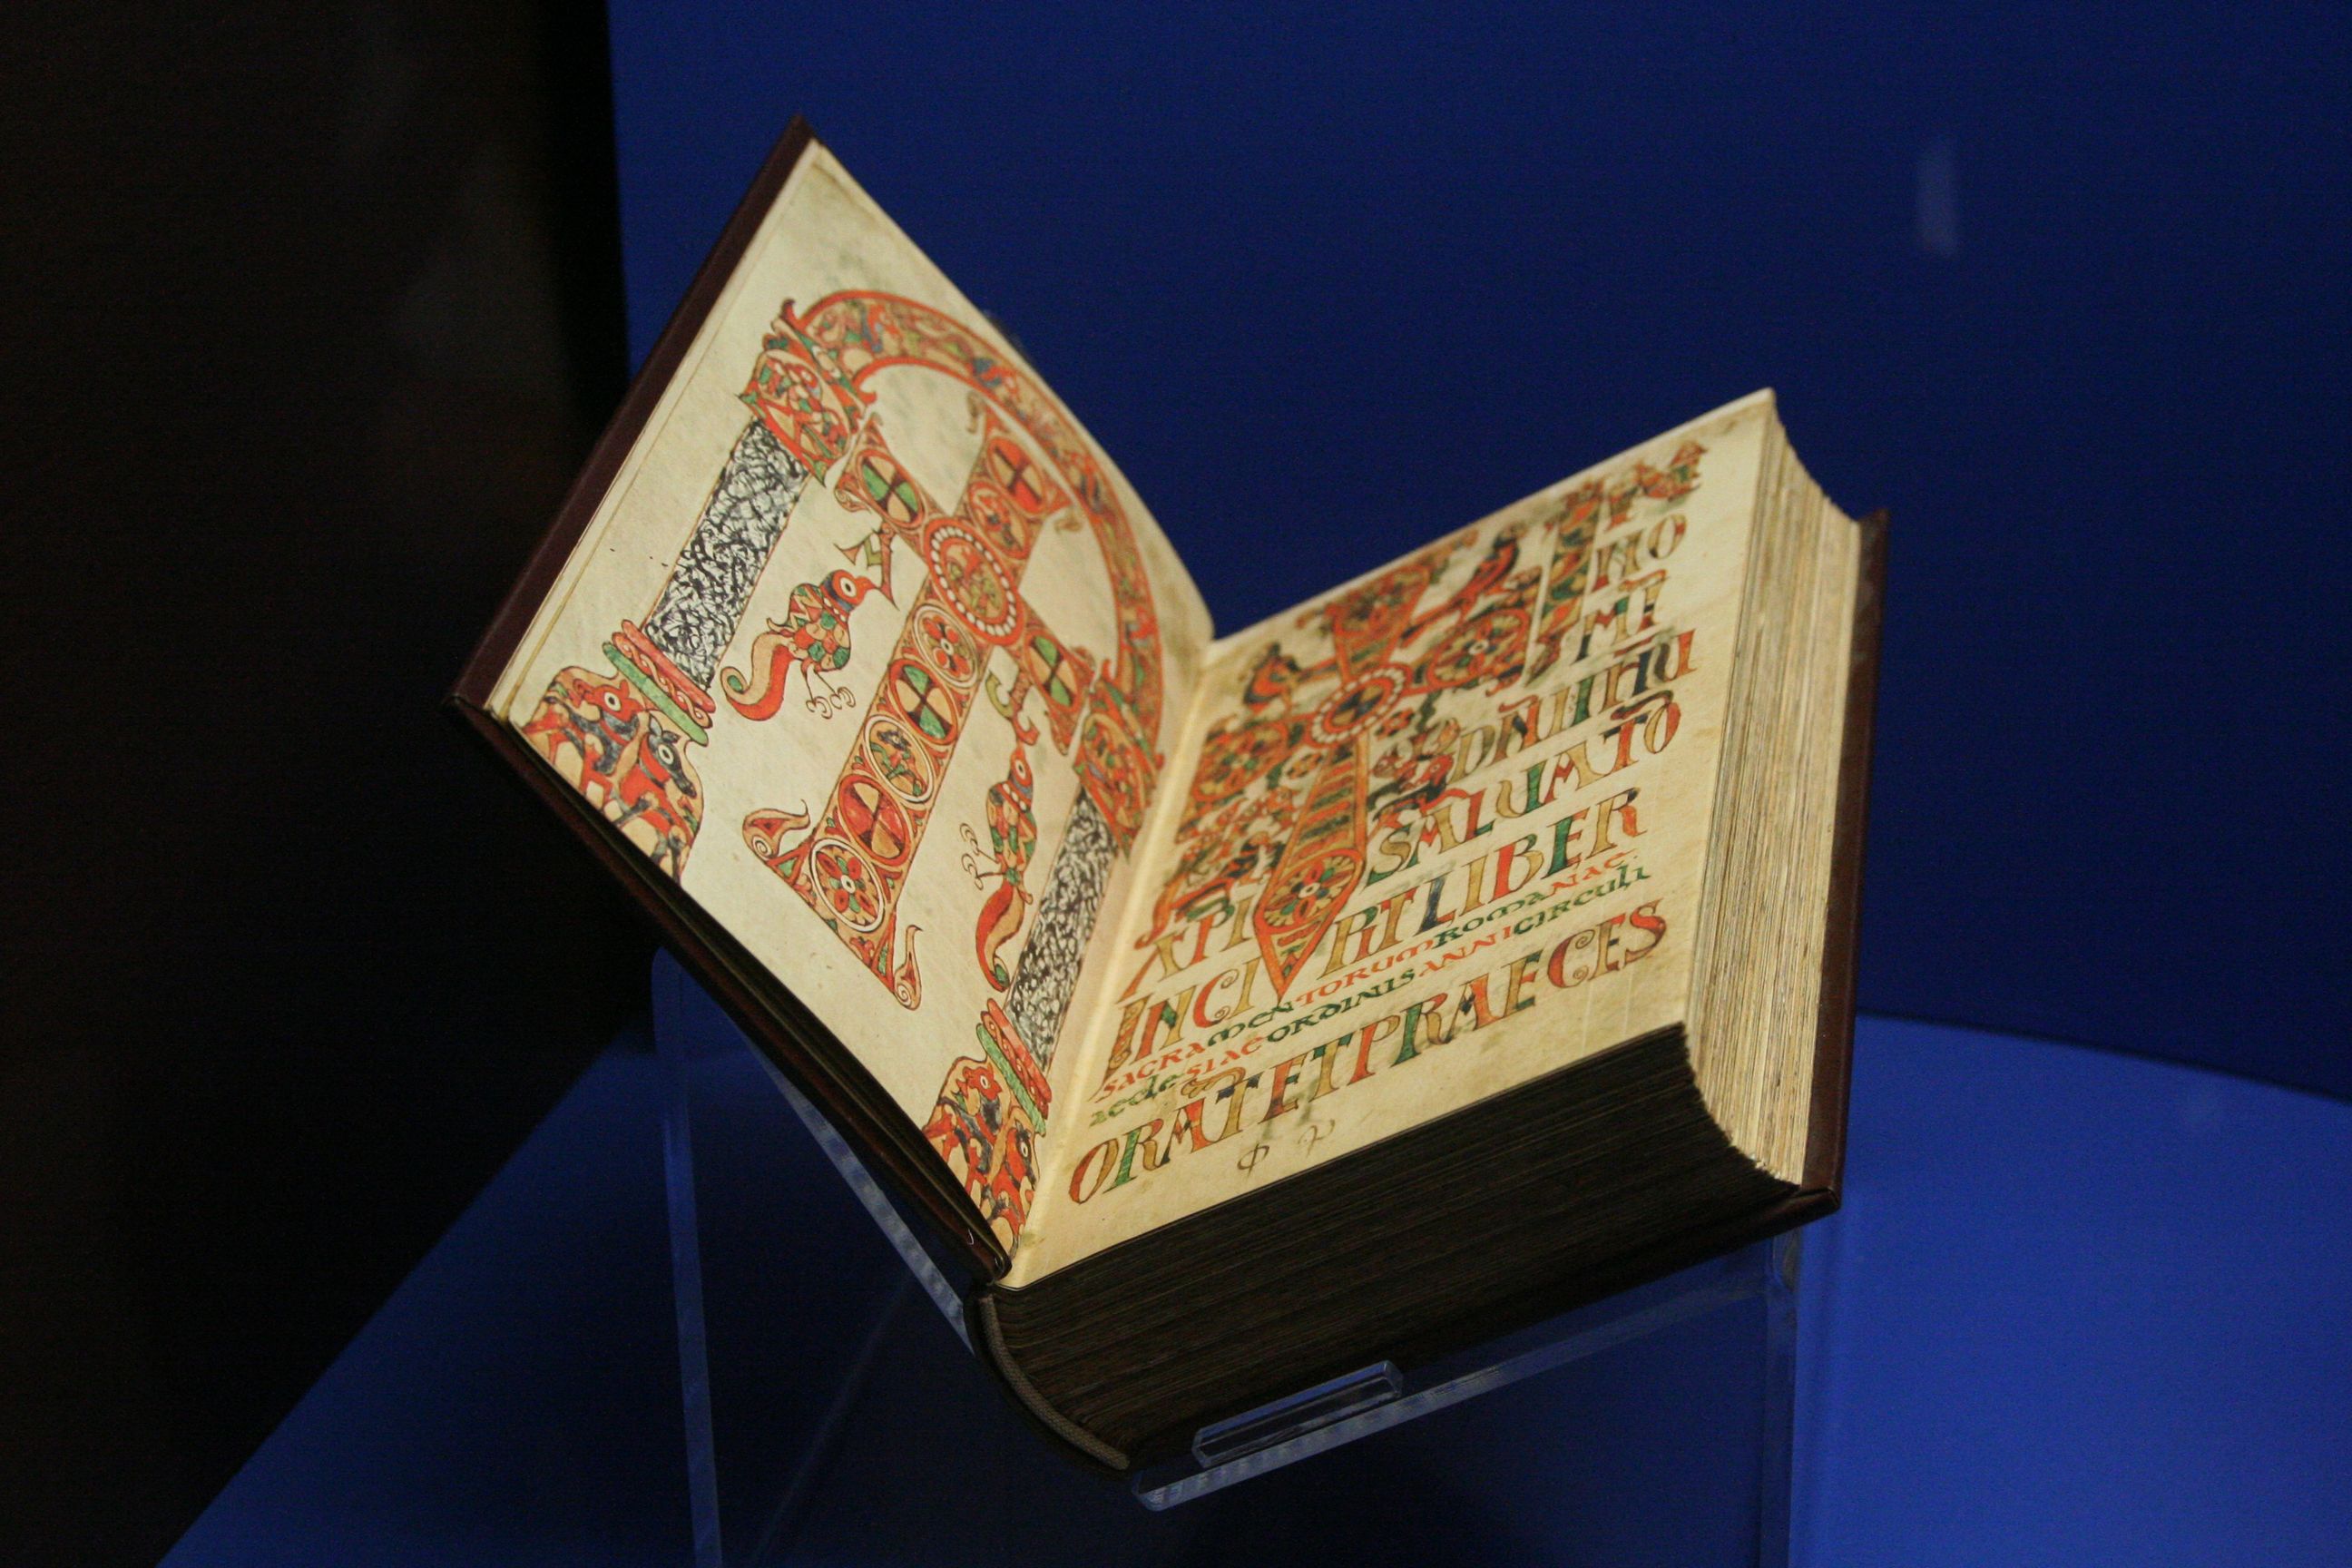 IN
NO
MI
DÑI IHU
XPI SALUATO
INCIPIT LIBER
SACRAMENTORUM ROMANAE
AECLESIAE ORDINIS ANNI CIRCULI
ORATET PRAECES